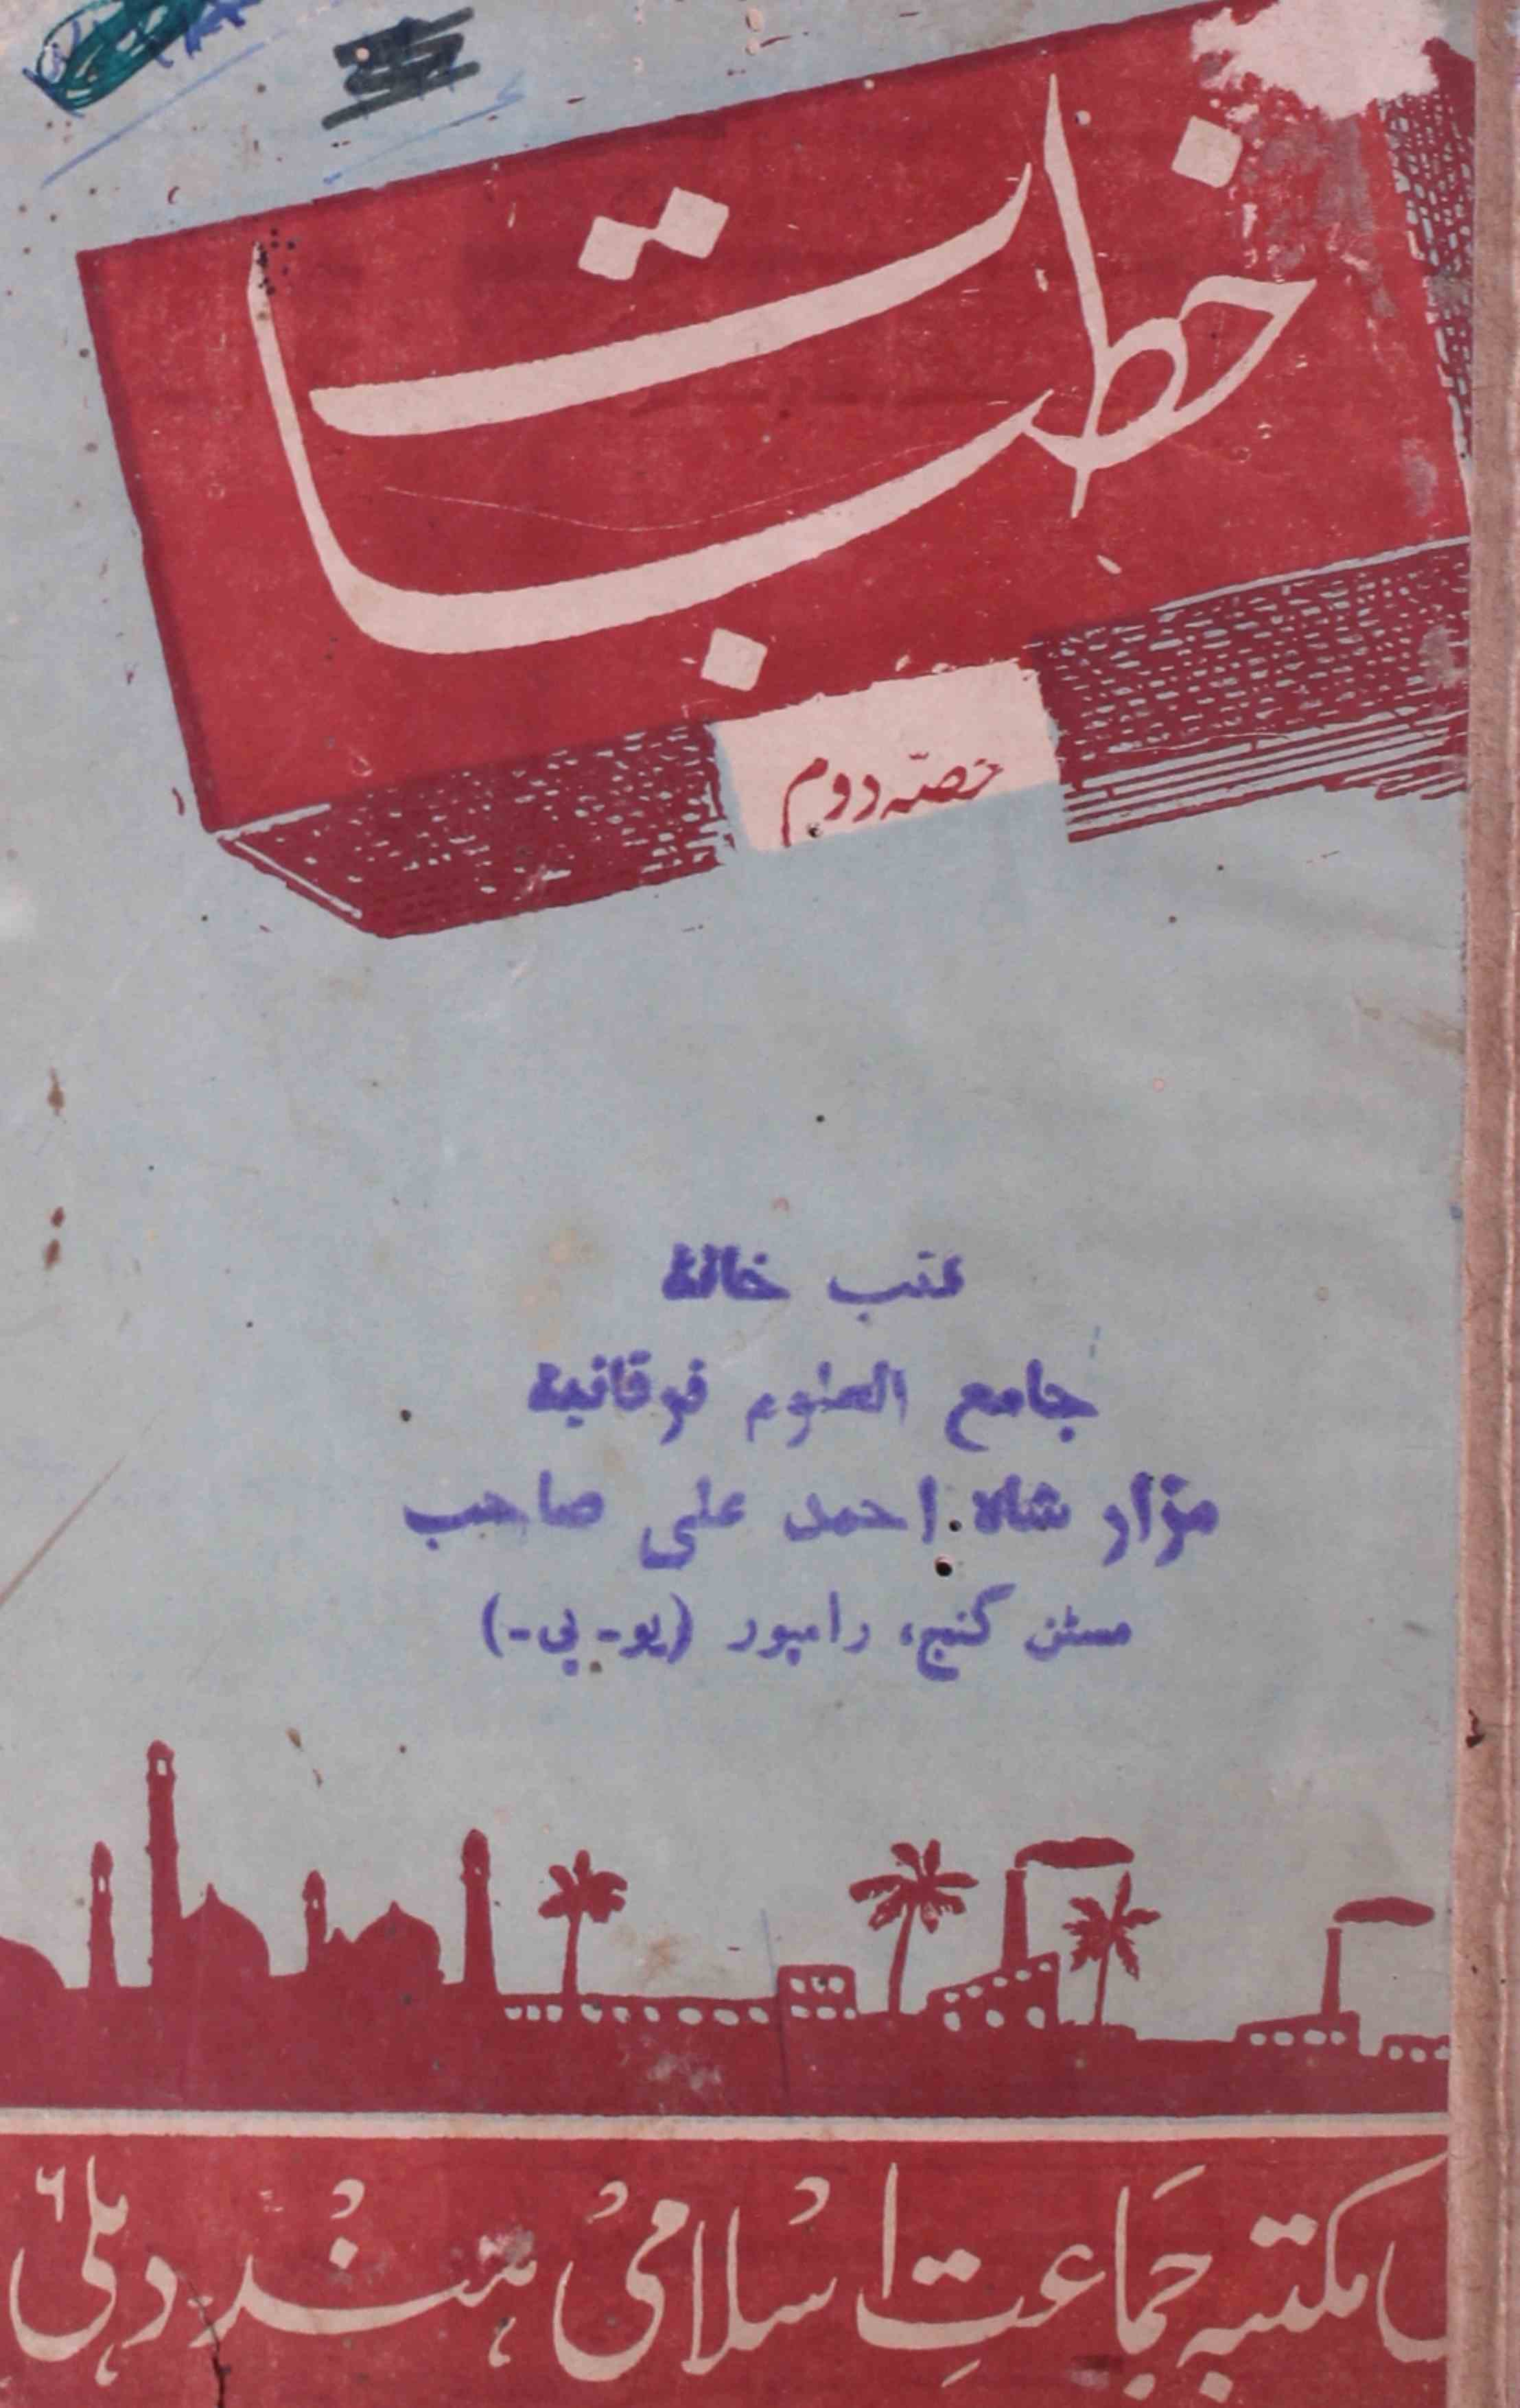 خطبات
حصّہ دوم
کتب خانہ
جامع العلوم فوقانیہ
مزار شاہ احمد علی صاحب
مسٹن گنج، رامپور (یو-پی-)
مکتبہ جماعتِ اسلامی ہند دہلی ۶